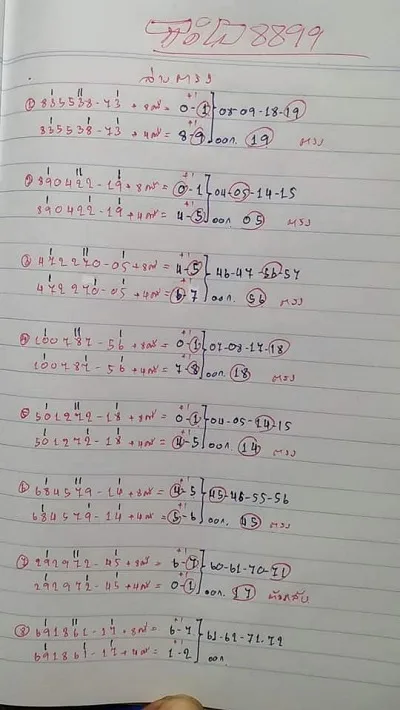 8899
ตรง
① 835538-73 + 8 = 0-1 08-09-18-19
835538-73 + 4 = 8-9 ออก. 19 ตรง
② 890422-19 + 8 = 0-1 04-05-14-15
890422-19 + 4 = 4-5 ออก. 05 ตรง
③ 472270-05 + 8 = 4-5 46-47-56-57
472270-05 + 4 = 6-7 ออก. 56 ตรง
④ 100787-56 + 8 = 0-1 07-08-17-18
100787-56 + 4 = 7-8 ออก. 18 ตรง
⑤ 501272-18 + 8 = 0-1 04-05-14-15
501272-18 + 4 = 4-5 ออก. 14 ตรง
⑥ 684579-14 + 8 = 4-5 45-46-55-56
684579-14 + 4 = 5-6 ออก. 45 ตรง
⑦ 292972-45 + 8 = 6-7 60-61-70-71
292972-45 + 4 = 0-1 ออก. 17
⑧ 691861-17 + 8 = 6-7 61-62-71-72
691861-17 + 4 = 1-2 ออก.